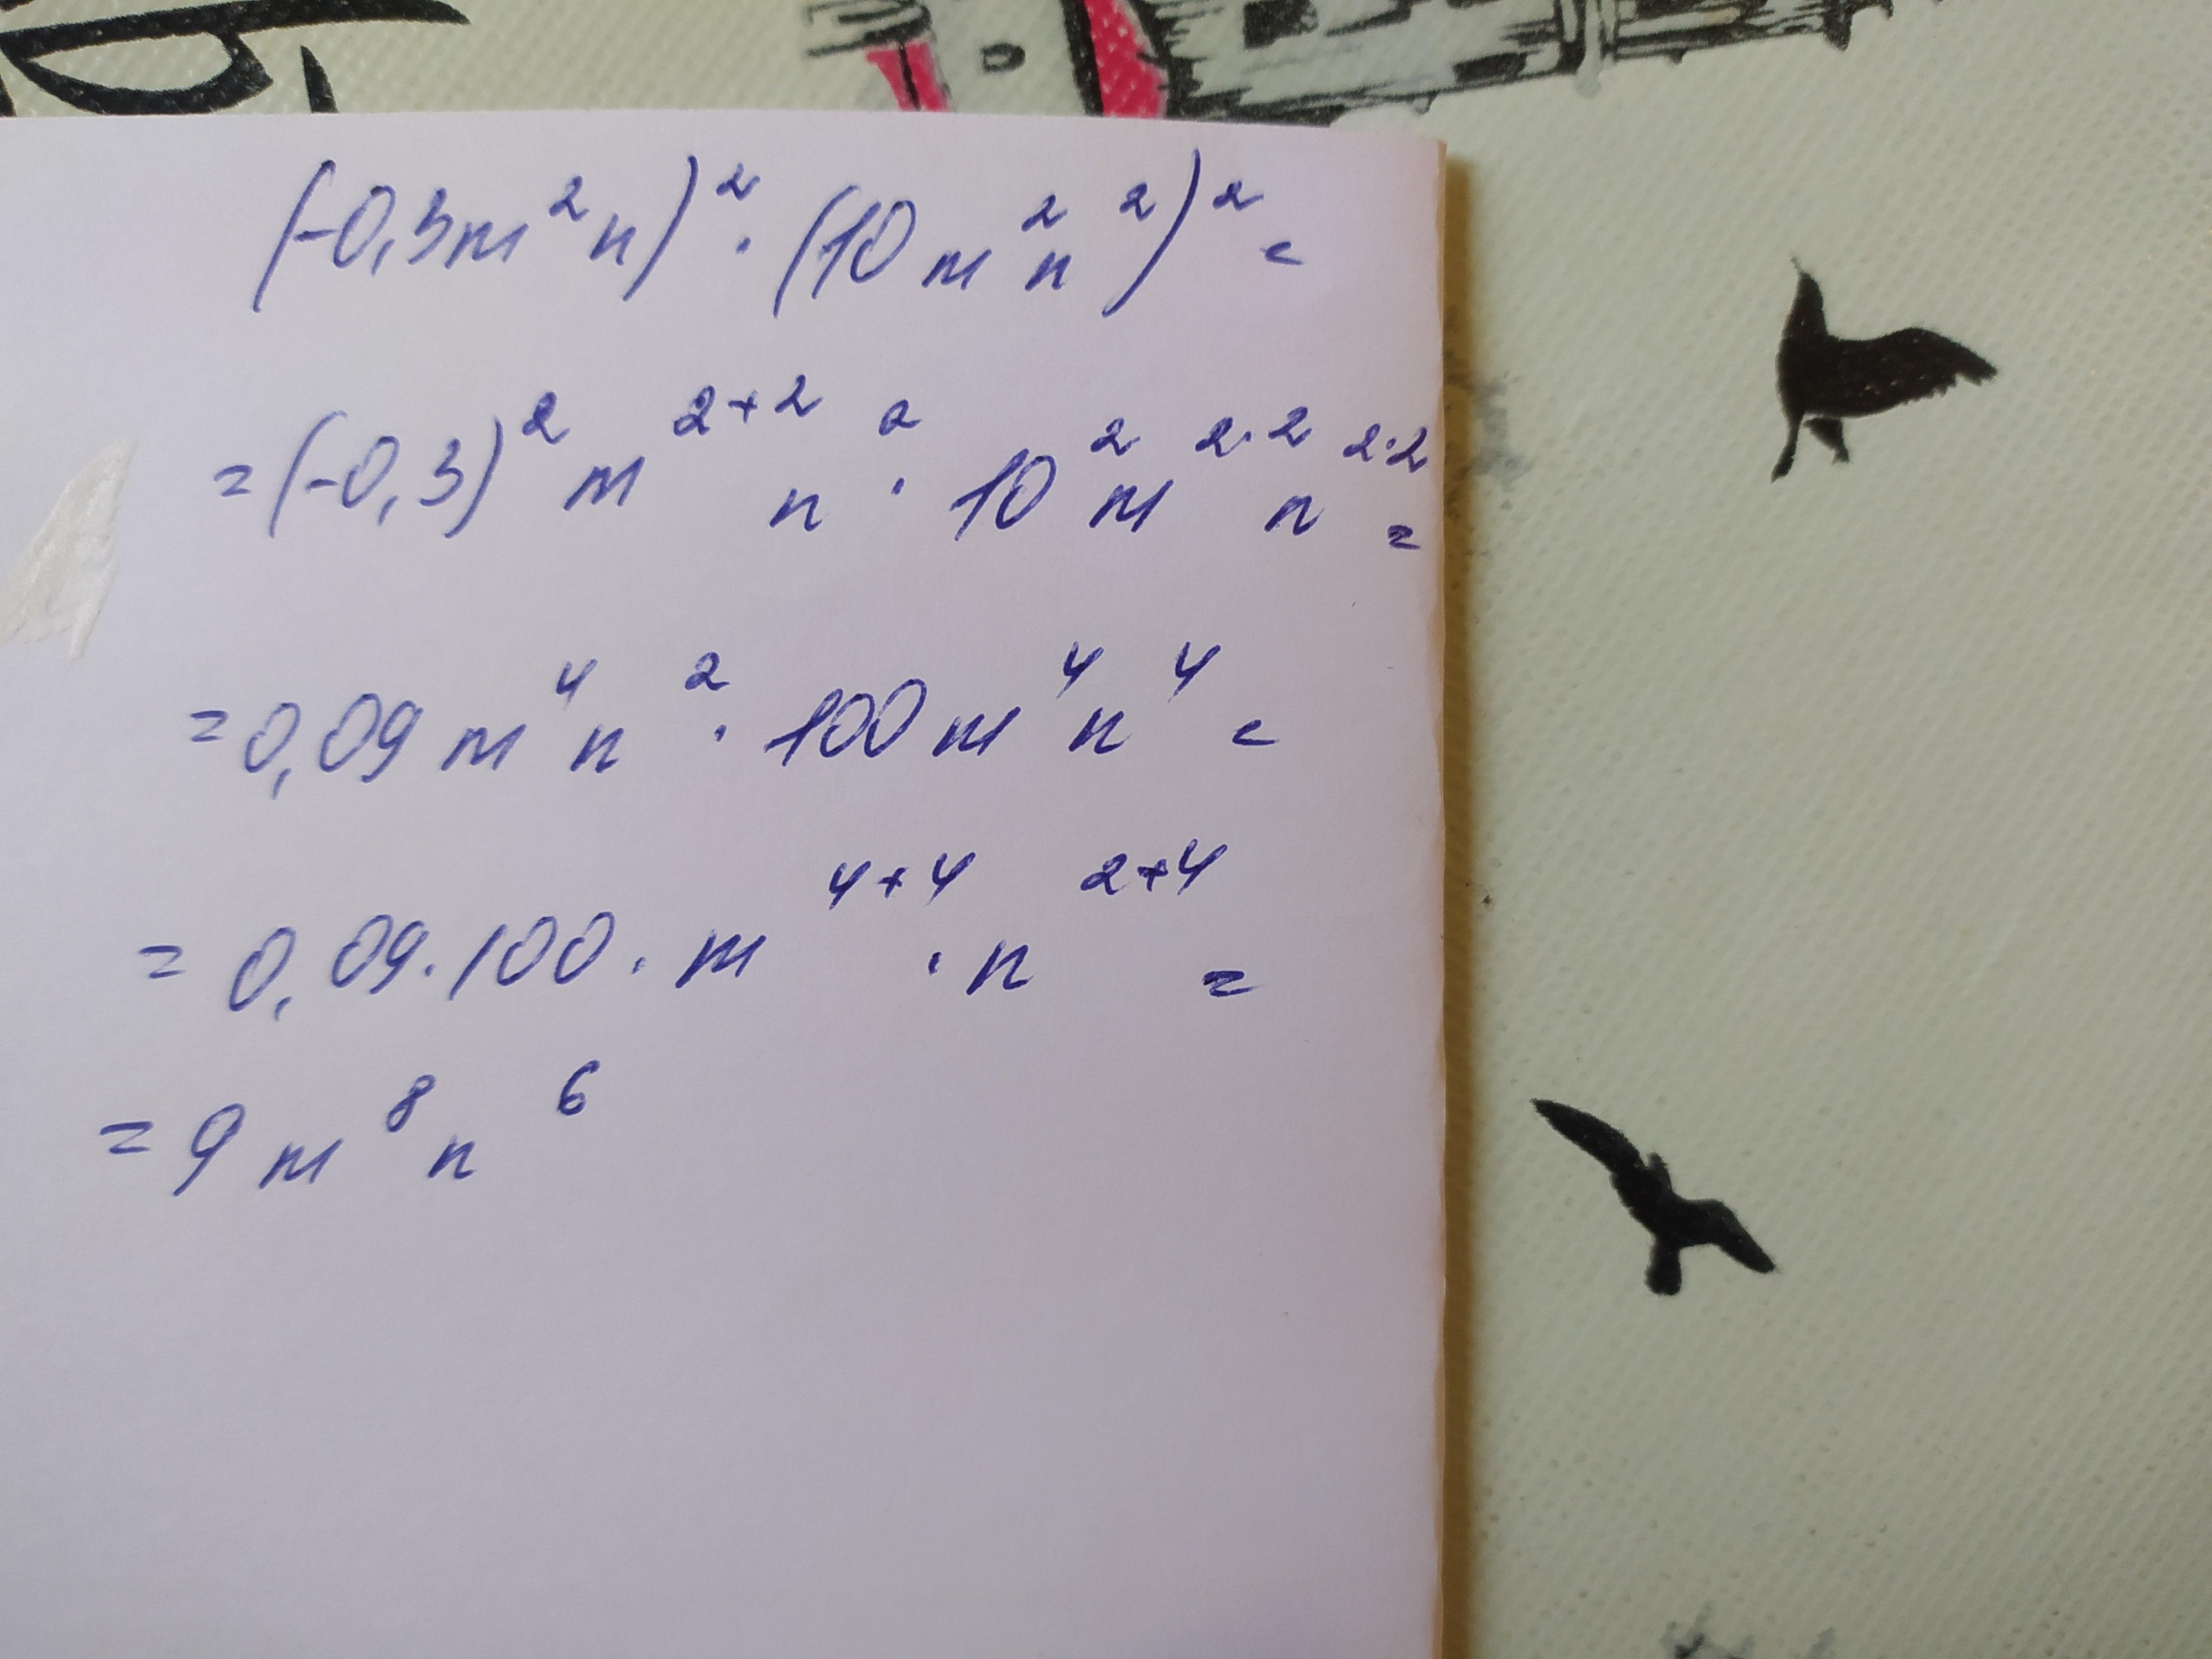 (-0,3m²n)² · (10m²n²)² =
= (-0,3)² m²⁺² n² · 10² m²˙² n²˙² =
= 0,09 m⁴n² · 100m⁴n⁴ =
= 0,09 · 100 · m⁴⁺⁴ · n²⁺⁴ =
= 9 m⁸ n⁶